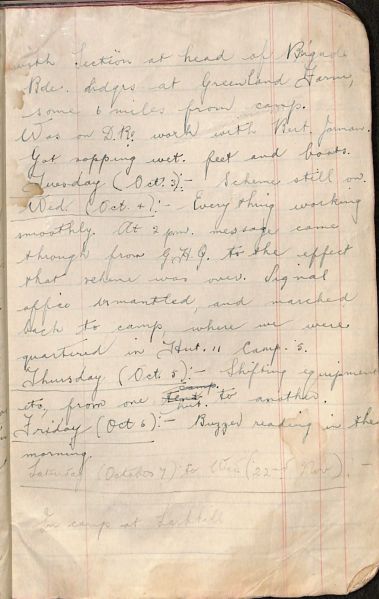 with Section at head of Brigade
Bde. hdqrs at Greenland Farm,
some 6 miles from camp.
Was on D.R. work with Bert.
Got sopping wet. feet and boots.
Tuesday (Oct. 3):- Scheme still on.
Wed. (Oct. 4):- Everything working
smoothly. At 2 pm. message came
through from G.H.Q. to the effect
that scheme was over. Signal
office dismantled, and marched
back to camp, where we were
quartered in Hut. 11 Camp. 5.
Thursday (Oct. 5):- Shifting equipment
etc, from one camp hut to another.
Friday (Oct 6):- Buzzer reading in the
morning.
Saturday (October 7) to Wed (22nd Nov):-
In camp at Larkhill